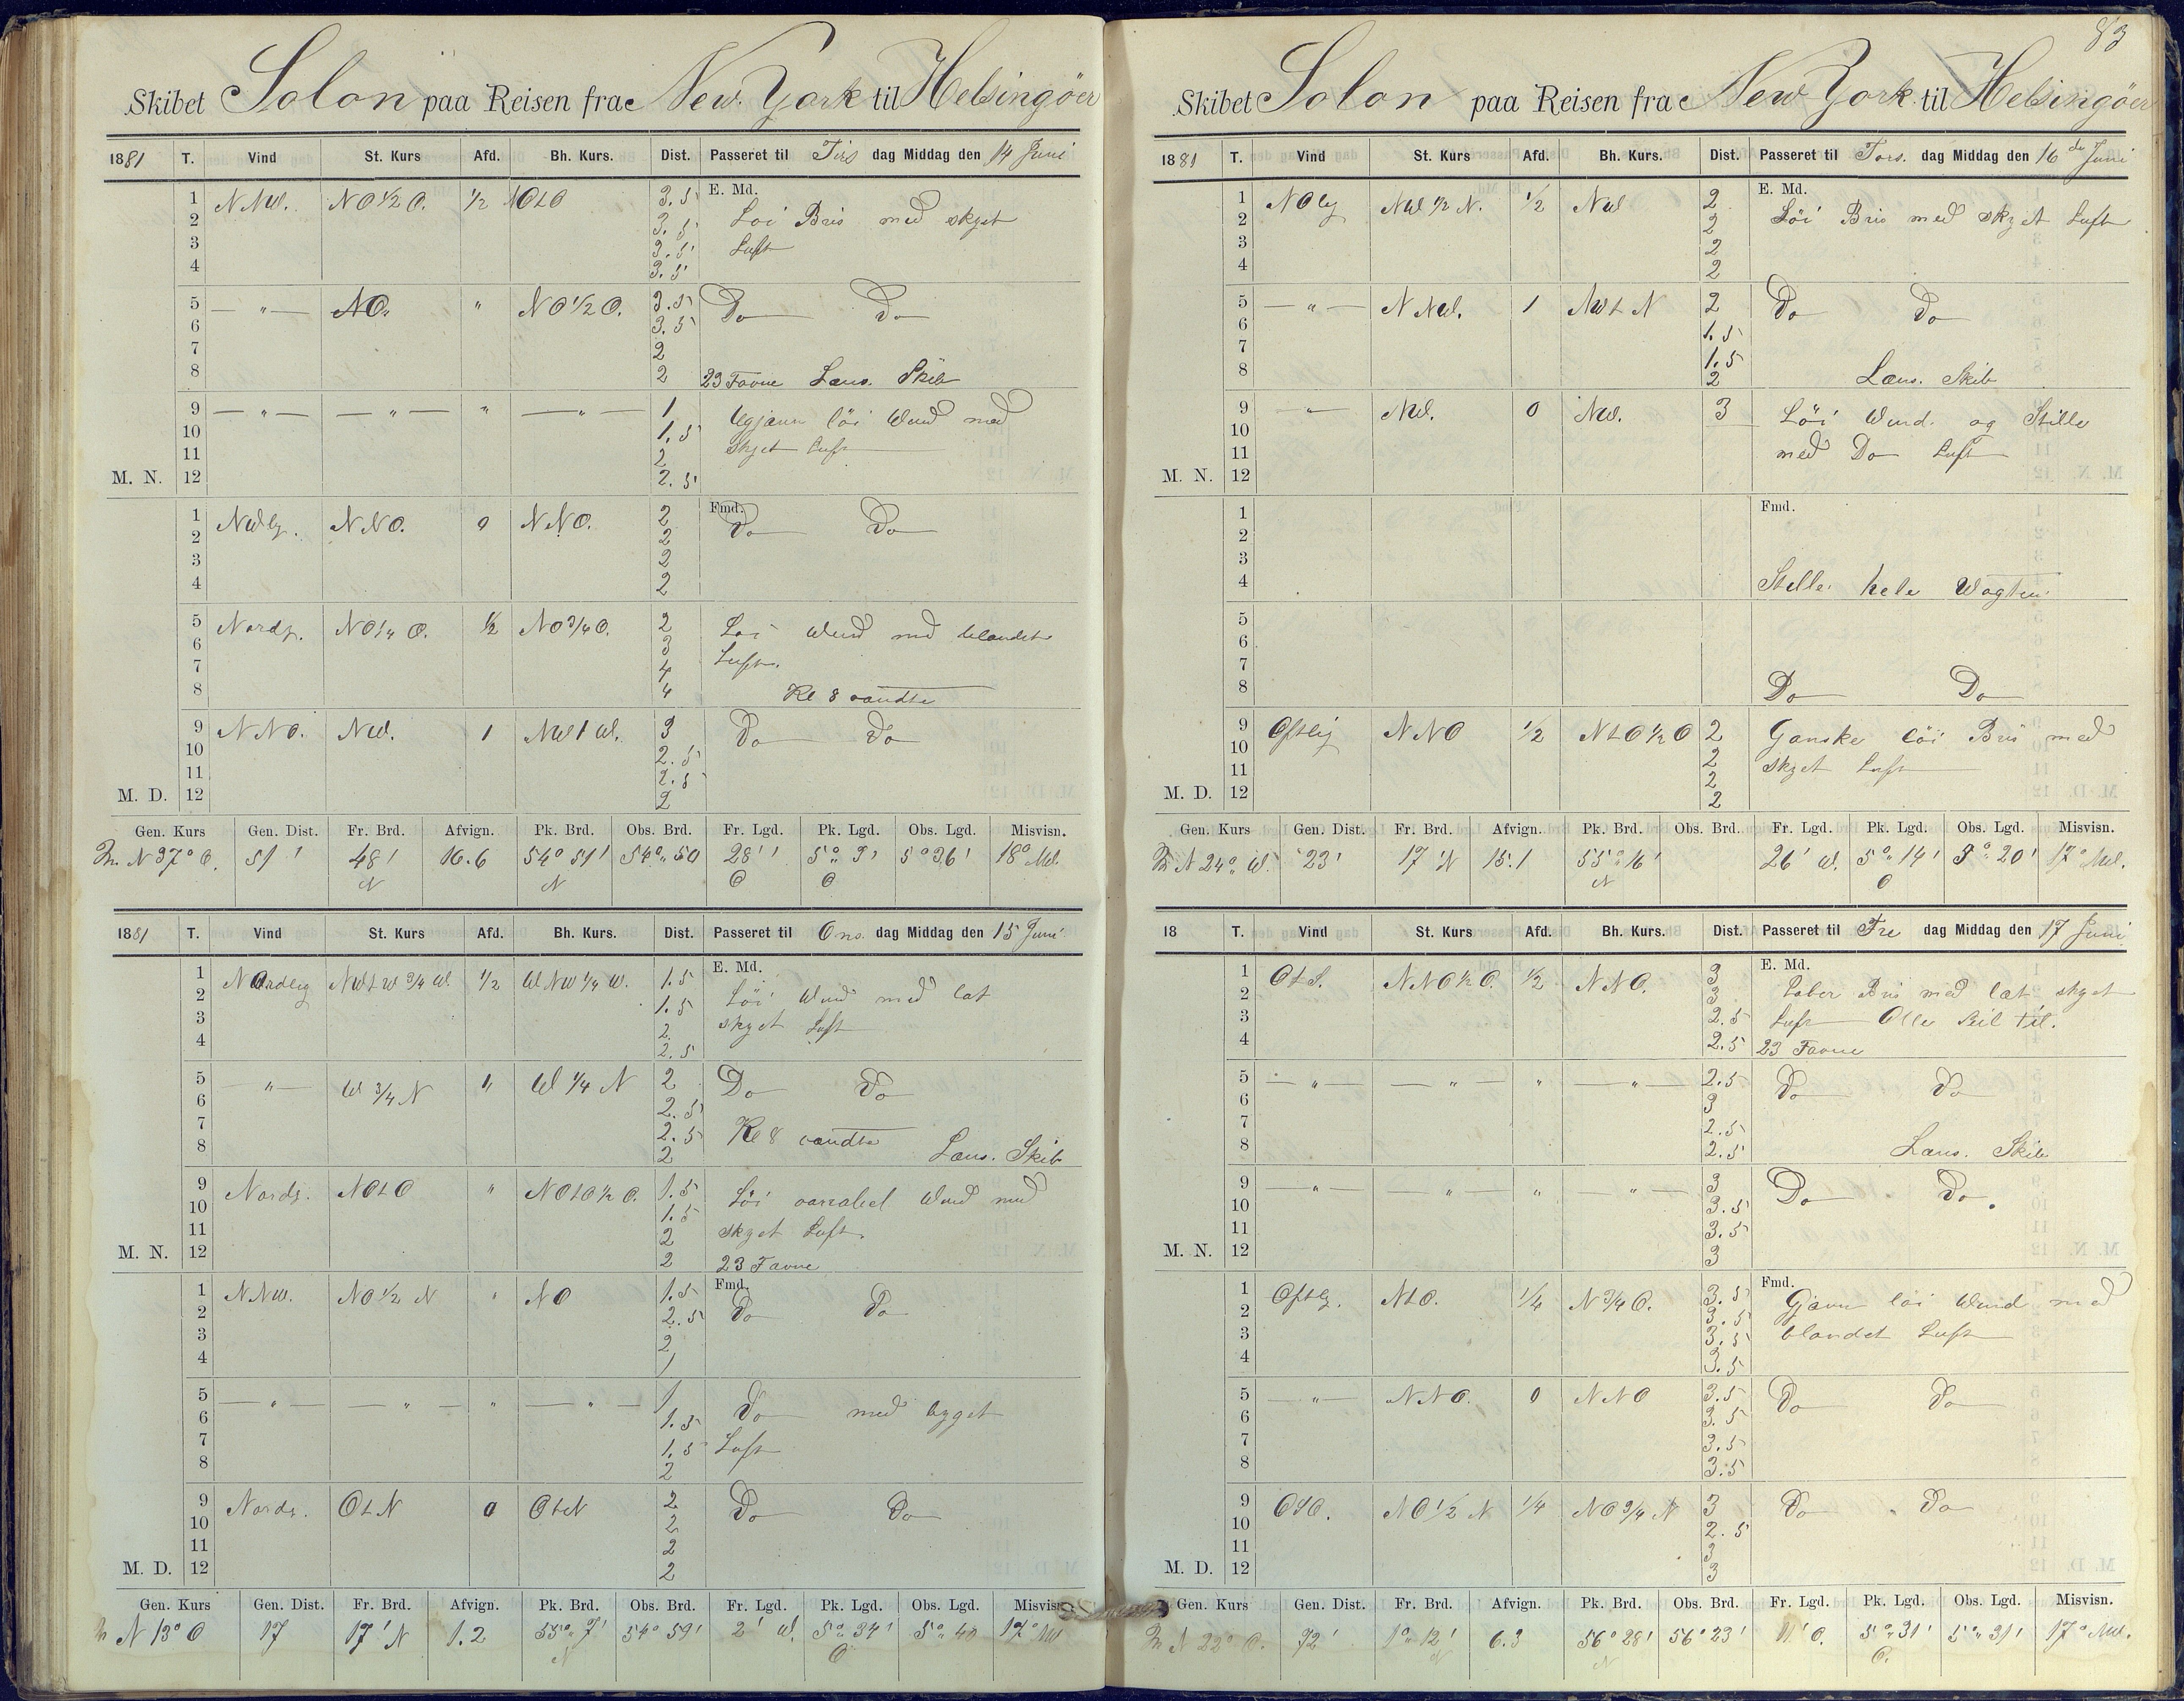 Skibet Solon paa Reisen fra New York til Helsingöer
1881 T. Vind St. Kurs Afd. Bh. Kurs. Dist. Passeret til Tirs dag Middag den 14 Juni
1 NNW. NO 1/2 O. 1/2 NOtO 3.5 E. Md.
2 3.5 Löi Bris med skyet
3 3.5 Luft
4 3.5
5 — " — NO. " NO 1/2 O. 3.5 Do Do
6 3.5
7 2
8 2 23 Favne Læns. Skib
9 — " — — " — " — " — 1 Ugjævn löi Wind med
10 1.5 skyet Luft
11 2
M. N. 12 2.5
1 NWlg. NNO. 0 NNO. 2 Fmd. Do Do
2 2
3 2
4 2
5 Nordg. NO 1/4 O. 1/2 NO 3/4 O. 2 Löi Wind med blandet
6 3 Luft.
7 4
8 4 Kl 8 vendte
9 NNO. NW. 1 NWtW. 3 Do Do
10 2.5
11 2.5
M. D. 12 2
Gen. Kurs Gen. Dist. Fr. Brd. Afvign. Pk. Brd. Obs. Brd. Fr. Lgd. Pk. Lgd. Obs. Lgd. Misvisn.
N 37° O. 51' 48' N 16.6 54° 51' N 54° 50 28' O 5° 3' O 5° 36' 18° NW.
1881 T. Vind St. Kurs Afd. Bh. Kurs. Dist. Passeret til Ons dag Middag den 15 Juni
1 Nordlig NWtW 3/4 W. 1/2 WNW 1/4 W. 1.5 E. Md.
2 1.5 Löi Wind med let
3 2 skyet Luft
4 2.5
5 — " — W 3/4 N " W 1/4 N 2 Do Do
6 2.5
7 2.5 Kl 8 vendte
8 2 Læns. Skib
9 Nordg. NOtO " NOtO 1/2 O. 1.5 Löi variabel Wind med
10 1.5 skyet Luft.
11 2
M. N. 12 2 23 Favne
1 NNW. NO 1/2 N " NO 1.5 Fmd. Do Do
2 2.5
3 2
4 1
5 — " — — " — " — " — 1 Do med bygget
6 1.5
7 1.5 Luft
8 2
9 Nordg. OtN 0 OtN 2 Do Do
10 2
11 2
M. D. 12 2
Gen. Kurs Gen. Dist. Fr. Brd. Afvign. Pk. Brd. Obs. Brd. Fr. Lgd. Pk. Lgd. Obs. Lgd. Misvisn.
N 13° O 17 17' N 1.2 55° 7' N 54° 59' 2' W. 5° 34' O 5° 40 17° NW
83
Skibet Solon paa Reisen fra New York til Helsingöer
1881 T. Vind St. Kurs Afd. Bh. Kurs. Dist. Passeret til Tors. dag Middag den 16de Juni
1 NOlg NW 1/2 N. 1/2 NW 2 E. Md.
2 2 Löi Bris med skyet Luft
3 2
4 2
5 — " — NNW. 1 NWtN 2 Do Do
6 1.5
7 1.5
8 2 Læns. Skib
9 — " — NW. 0 NW. 3 Löi Wind. og Stille
10 med Do Luft
11
M. N. 12
1 Fmd.
2
3
4 Stille hele Wagten
5
6
7
8 Do Do
9 Ostlig NNO 1/2 NtO 1/2 O 2 Ganske löi Bris med
10 2 skyet Luft
11 2
M. D. 12 2
Gen. Kurs Gen. Dist. Fr. Brd. Afvign. Pk. Brd. Obs. Brd. Fr. Lgd. Pk. Lgd. Obs. Lgd. Misvisn.
N 24° W. 23' 17' N 15.1 55° 16' N 26' W. 5° 14' O 5° 20' 17° NW.
18 T. Vind St. Kurs Afd. Bh. Kurs. Dist. Passeret til Fre dag Middag den 17 Juni
1 OtS. NNO 1/2 O. 1/2 NNO. 3 E. Md.
2 3 Laber Bris med læt skyet
3 2.5 Luft Alle Seil til.
4 2.5 23 Favne
5 — " — — " — " — " — 2.5 Do Do
6 3
7 2.5
8 2.5 Læns. Skib
9 — " — — " — " — " — 3 Do Do.
10 3.5
11 3.5
M. N. 12 3
1 Ostlg. NtO. 1/4 N 3/4 O. 3.5 Fmd.
2 3.5 Gjævn löi Wind med
3 3.5 blandet Luft
4 3.5
5 — " — NNO. 0 NNO 3.5 Do Do
6 3.5
7 3.5
8 3.5
9 OSO. NO 1/2 N 1/4 NO 3/4 N 3 Do Do
10 2.5
11 3
M. D. 12 3
Gen. Kurs Gen. Dist. Fr. Brd. Afvign. Pk. Brd. Obs. Brd. Fr. Lgd. Pk. Lgd. Obs. Lgd. Misvisn.
N 22° O. 72' 1° 12' N 6.3 56° 28' N 56° 23' 11' O. 5° 31' O. 5° 31' 17° NW.